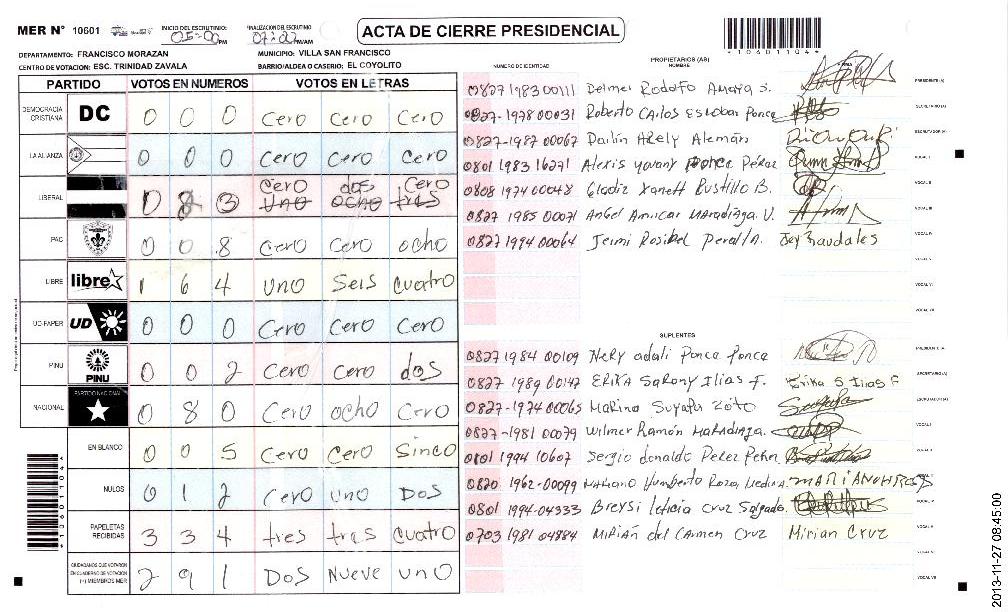 MER N° 10601 INICIO DEL ESCRUTINIO 05:00 PM FINALIZACION DEL ESCRUTINIO PM/AM
ACTA DE CIERRE PRESIDENCIAL
*10601104*
DEPARTAMENTO: FRANCISCO MORAZAN MUNICIPIO: VILLA SAN FRANCISCO
CENTRO DE VOTACION: ESC. TRINIDAD ZAVALA BARRIO/ALDEA O CASERIO: EL COYOLITO
PARTIDO VOTOS EN NUMEROS VOTOS EN LETRAS
DEMOCRACIA CRISTIANA DC 0 0 0 Cero Cero Cero
LA ALIANZA 0 0 0 Cero Cero Cero
LIBERAL 0 8 3 Cero dos Cero
uno ocho tres
PAC 0 0 8 Cero Cero ocho
LIBRE libre 1 6 4 uno Seis Cuatro
UD-FAPER UD 0 0 0 Cero Cero Cero
PINU PINU 0 0 2 Cero Cero dos
NACIONAL PARTIDO NACIONAL 0 8 0 Cero ocho Cero
EN BLANCO 0 0 5 Cero Cero Sinco
NULOS 0 1 2 Cero uno Dos
PAPELETAS RECIBIDAS 3 3 4 tres tres Cuatro
CIUDADANOS QUE VOTARON EN CUADERNO DE VOTACION (+) MIEMBROS MER 2 9 1 Dos Nueve uno
NUMERO DE IDENTIDAD PROPIETARIOS (AS) NOMBRE FIRMA
0827 1983 00111 Delmer Rodolfo Amaya S. PRESIDENTE (A)
0827-1978 00031 Roberto Carlos Escobar Ponce SECRETARIO (A)
0827-1987 00067 Darlin Arely Alemán ESCRUTADOR (A)
0801 1983 16271 Alexis yovany Ponce Pérez VOCAL I
0808 1974 00048 Gladiz Xanett Bustillo B. VOCAL II
0827 1985 00071 Angel Amilcar Maradiaga. V. VOCAL III
0827 1994 00064 Jeimi Rosibel Peralta. VOCAL IV
VOCAL V
VOCAL VI
VOCAL VII
SUPLENTES
0827 1984 00109 Nery adali Ponce Ponce PRESIDENTE (A)
0827 1989 00147 Erika Sarony Ilias F. Erika S Ilias F SECRETARIO (A)
0827-1974 00065 Marina Suyapa Zoto ESCRUTADOR (A)
0827-1981 00079 Wilmer Ramón Maradiaga. VOCAL I
0801 1994 10607 Sergio donaldo Perez Peña VOCAL II
0820 1962-00099 Mariano Humberto Roza Medina.
0801 1994-04333 Breysi leticia Cruz Salgado. VOCAL IV
0703 1981 04884 Mirián del Carmen Cruz Mirian Cruz VOCAL V
VOCAL VI
VOCAL VII
*10601104*
2013-11-27 08:45:00